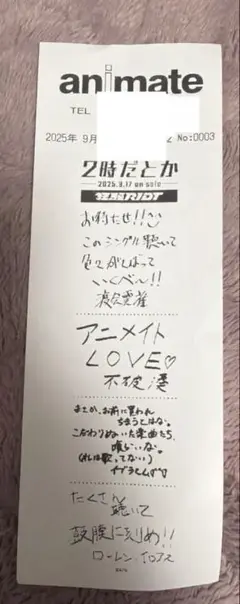 animate
TEL
2025年 9月
2 No:0003
2時だとか
2025.9.17 on sale
狂騒RIOT
お待たせ!!
このシングル聴いて
色々がんばって
いくべ〜!!
渡会雲雀
アニメイト
LOVE♡
不破湊
まさか、お前に買われ
ちまうとはな。
こだわりぬいた楽曲たち、
喰らいな。
(オレは歌ってない)
たくさん
聴いて
鼓膜に刻め!!
ローレン・イロアス